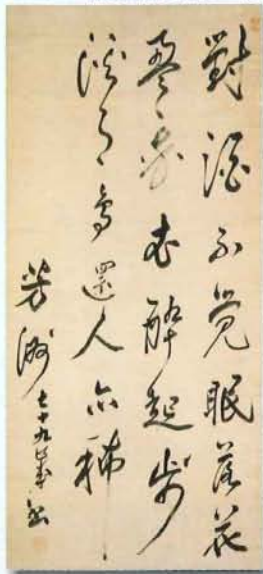 對酒不覺眠落花
盈我衣醉起步
溪月鳥還人亦稀
芳洲七十九歲書